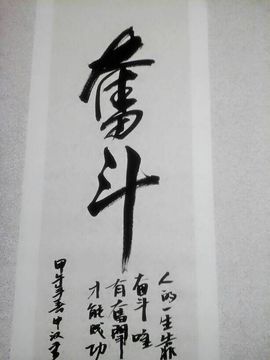 奮斗
人的一生靠
奋斗唯
有奮鬥
才能成功
甲午年春